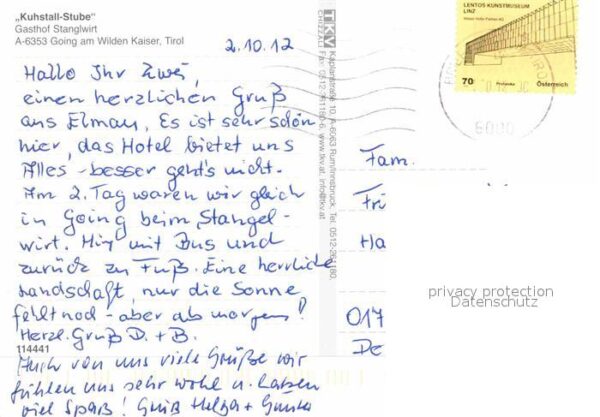 „Kuhstall-Stube“
Gasthof Stanglwirt
A-6353 Going am Wilden Kaiser, Tirol
2.10.12
Hallo Ihr Zwei,
einen herzlichen Gruß
aus Elmau. Es ist sehr schön
hier, das Hotel bietet uns
Alles - besser geht's nicht.
Am 2. Tag waren wir gleich
in Going beim Stangel-
wirt. Hin mit Bus und
zurück zu Fuß. Eine herrliche
Landschaft, nur die Sonne
fehlt noch - aber ab morgen!
Herzl. Gruß D. + B.
114441
Auch von uns viele Grüße wir
fühlen uns sehr wohl u. haben
viel Spaß! Gruß Helga + Gunter
TKV
Kaplanstraße 10, A-6063 Rum/Innsbruck, Tel. 0512-261180,
Fax: 0512-261180-6, www.tkv.at, info@tkv.at
LENTOS KUNSTMUSEUM
LINZ
70
Österreich
Fam.
Fri
Ha
017
De
privacy protection
Datenschutz